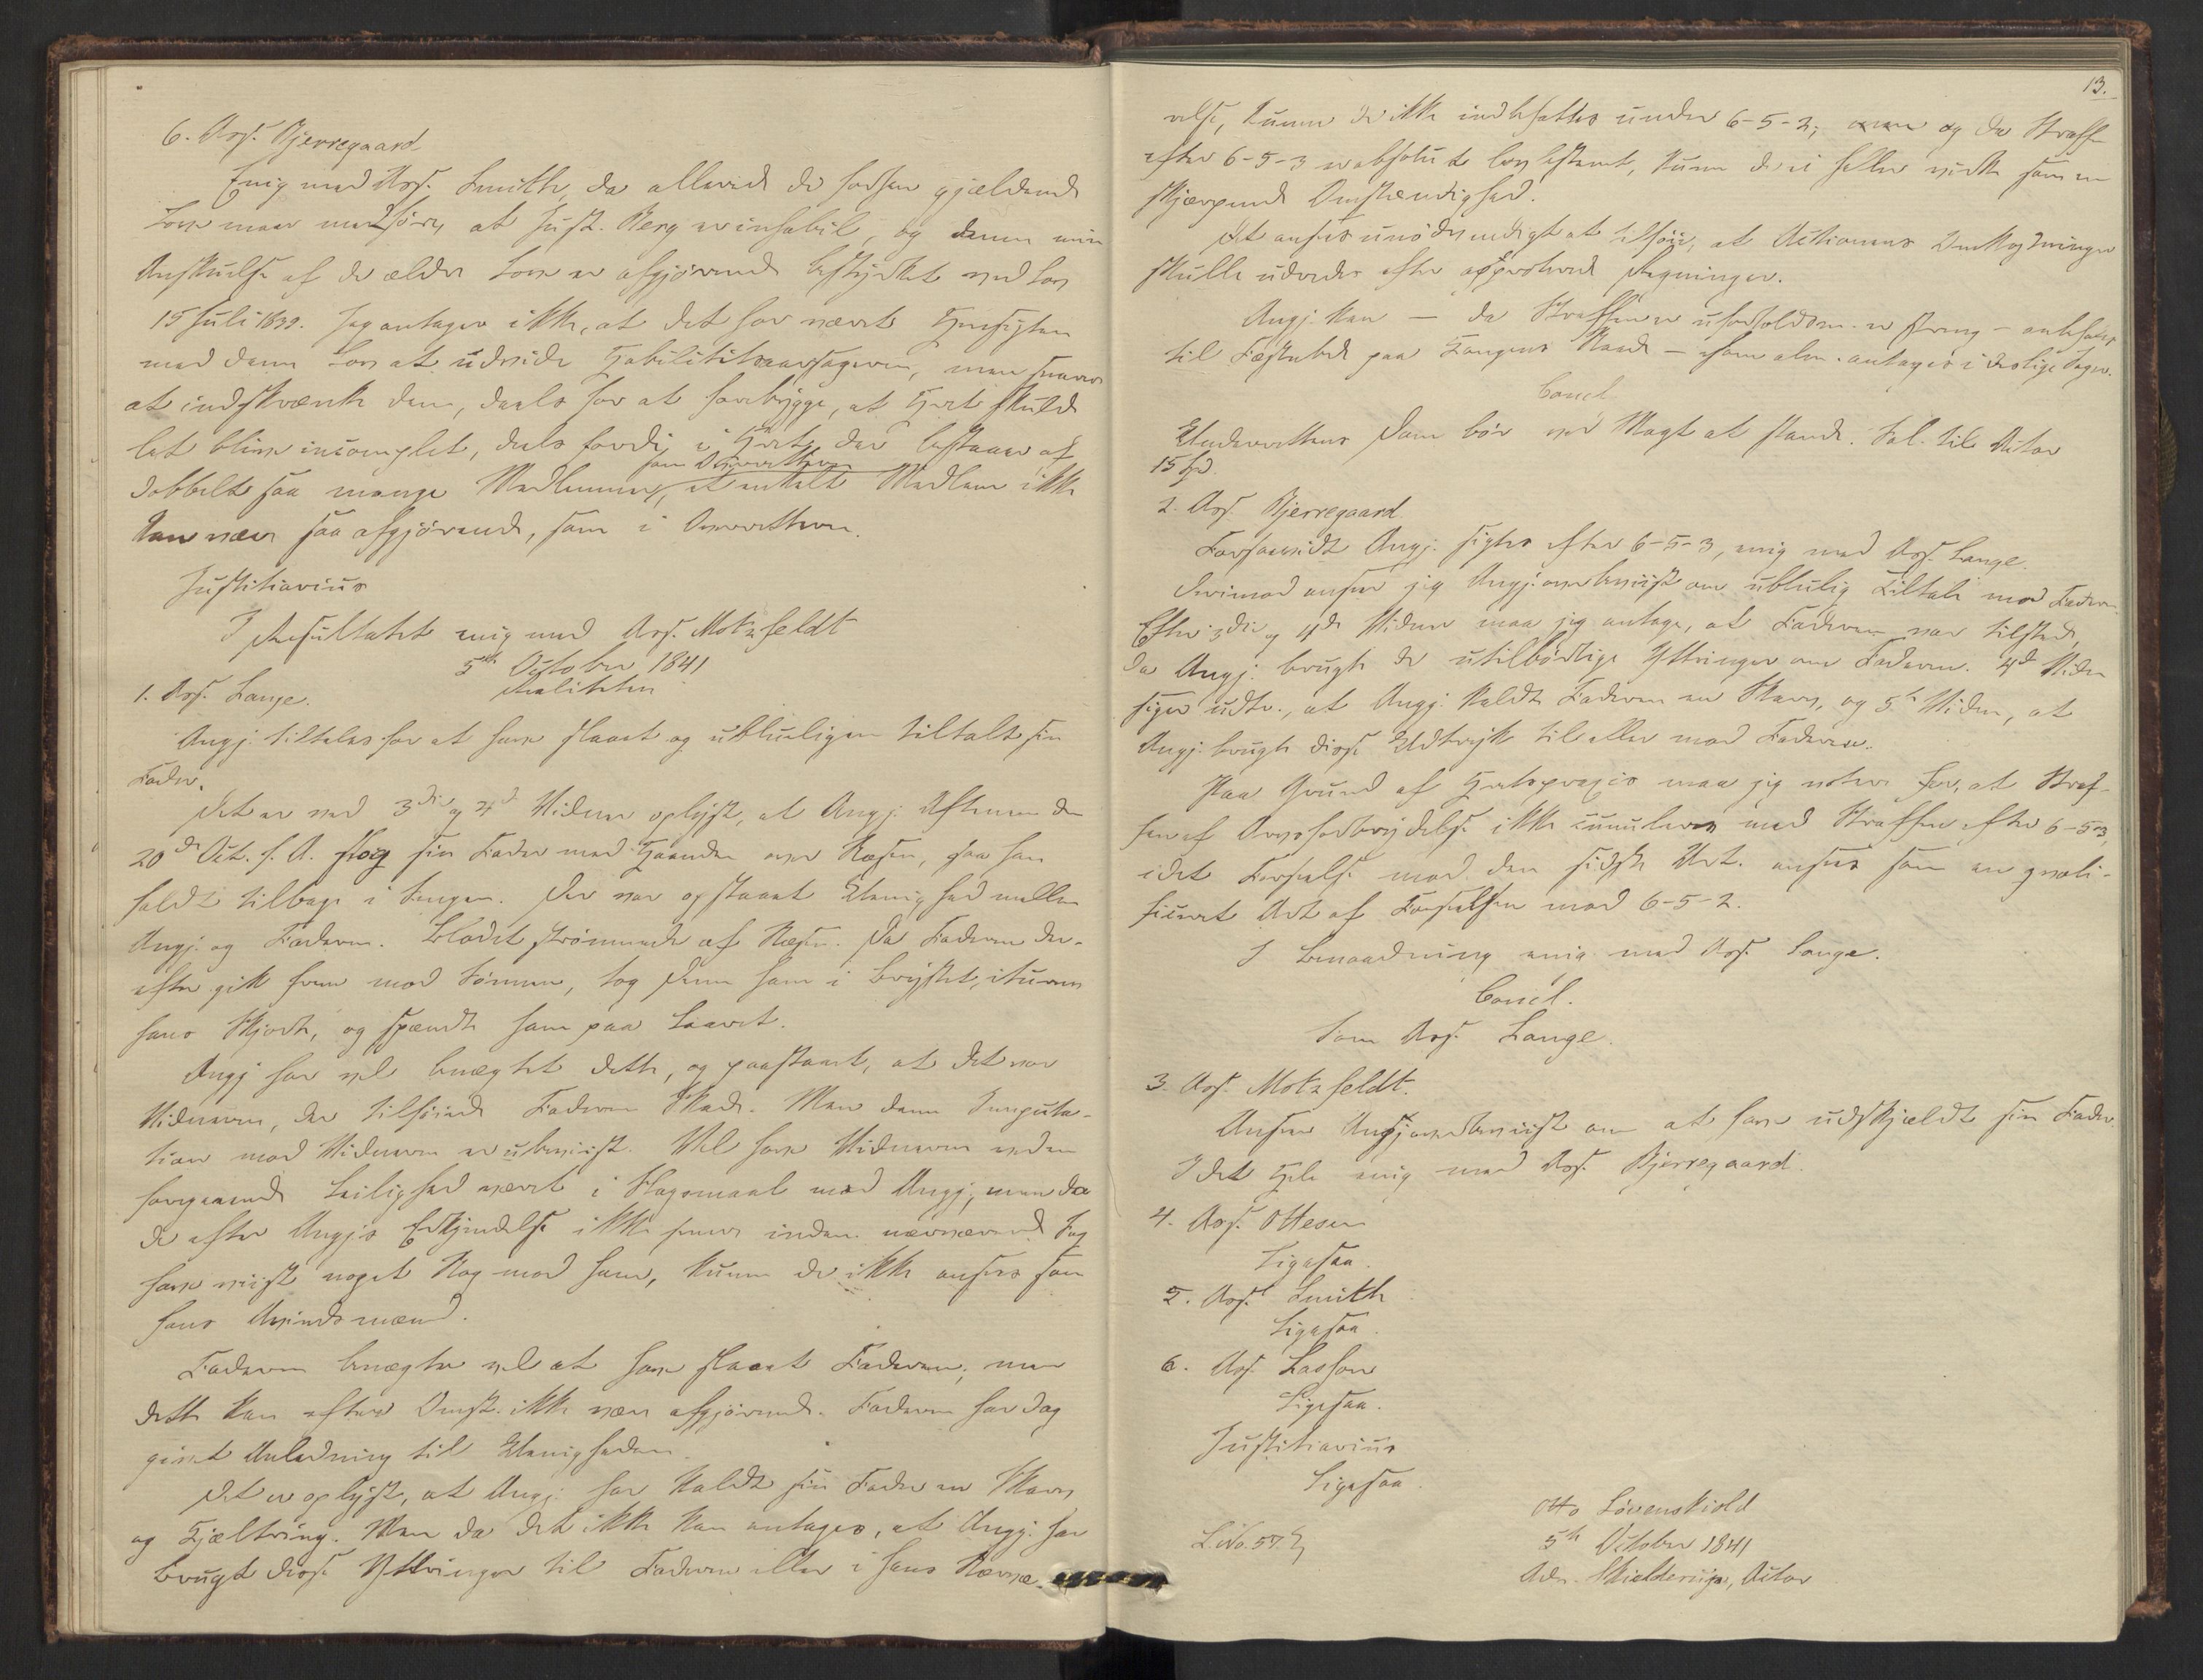 6. Ass. Bjerregaard
Enig med Ass. Smith, da allerede de forhen gjældende
Love maae medføre, at Just. Berg er inhabil, og denne min
Anskuelse af de ældre Love er afgjørende bestyrket ved Lov
15 Juli 1839. Jeg antager ikke, at det har været Hensigten
med denne Lov at udvide Habilititsaarsagerne, men snarere
at indskrænke dem, deels for at forebygge, at Høiest. skulde
let blive incomplet, deels fordi i Høiest. der bestaaer af
dobbelt saa mange Medlemmer, som Overretterne, et enkelt Medlem ikke
kan være saa afgjørende, som i Overretterne.
Justitiarius
I Resultatet enig med Ass. Motzfeldt
5te October 1841
Realiteten
1. Ass. Lange.
Angj. tiltales for at have slaaet og ublueligen tiltalt sin
Fader.
Det er ved 3die og 4de Vidner oplyst, at Angj. Aftenen den
20de Oct. f. A. slog sin Fader med Haanden over Næsen, saa han
faldt tilbage i Sengen. Der var opstaaet Uenighed mellem
Angj. og Faderen. Blodet strømmede af Næsen. Da Faderen der-
efter gik frem mod Sønnen, tog denne ham i Brystet, iturev
hans Skjorte, og spændte ham paa Laaret.
Angj. har vel benægtet dette, og paastaaet, at det var
Vidnerne, der tilføiede Faderen Skade. Men denne Imputa-
tion mod Vidnerne er ubeviist. Vel have Vidnerne ved en
foregaaende Leilighed været i Slagsmaal med Angj., men da
de efter Angj.s Erkjendelse ikke senere inden nærværende Sag
have viist noget Nag mod ham, kunne de ikke ansees som
hans Avindsmænd.
Faderen benægter vel at have slaaet Faderen, men
dette kan efter Omst. ikke være afgjørende. Faderen har dog
givet Anledning til Uenigheden.
Det er oplyst, at Angj. har kaldt sin Fader en Skarv
og Kjæltring. Men da det ikke kan antages, at Angj. har
brugt disse Yttringer til Faderen eller i hans Nærvæ-
13.
relse, kunne de ikke indbefattes under 6-5-2; og da Straffen
efter 6-5-3 er absolut lovbestemt, kunne de ei heller virke som en
skjærpende Omstændighed.
Det ansees unødvendigt at tilføie, at Actionens Omkostninger
skulle udredes efter approberede Regninger.
Angj. kan — da Straffen er uforholdsm. er streng — anbefales
til Fæstebed paa Kongens Naade — som alm. antages i deslige Sager.
Concl.
Underrettens Dom bør ved Magt at stande. Sal. til Actor
15 Spd.
2. Ass. Bjerregaard
Forsaavidt Angj. sigtes efter 6-5-3, enig med Ass. Lange.
Derimod anseer jeg Angj. overbeviist om ubluelig Tiltale mod Faderen.
Efter 3die og 4de Vidner maa jeg antage, at Faderen var tilstede,
da Angj. brugte de utilbørlige Yttringer om Faderen. 4de Vidne
siger udtr., at Angj. kaldte Faderen en Skarv, og 5te Vidne, at
Angj. brugte disse Udtryk til eller mod Faderen.
Paa Grund af Høiestpraxis maa jeg votere for, at Straf-
fen af Æresforbrydelse ikke cumuleres med Straffen efter 6-5-3,
idet Forseelse mod den sidste Art. ansees som en qvali-
ficeret Art af Forseelsen mod 6-5-2.
I Benaadning enig med Ass. Lange.
Concl.
Som Ass. Lange.
3. Ass. Motzfeldt.
Anseer Angj. overbeviist om at have udskjældt sin Fader.
I det Hele enig med Ass. Bjerregaard.
4. Ass. Ottesen
Ligesaa.
5. Ass. Smith
Ligesaa.
6. Ass. Lasson
Ligesaa.
Justitiarius
Ligesaa.
L. No. 57.
Otto Løvenskiold
5te October 1841
Adv. Skielderup, Actor